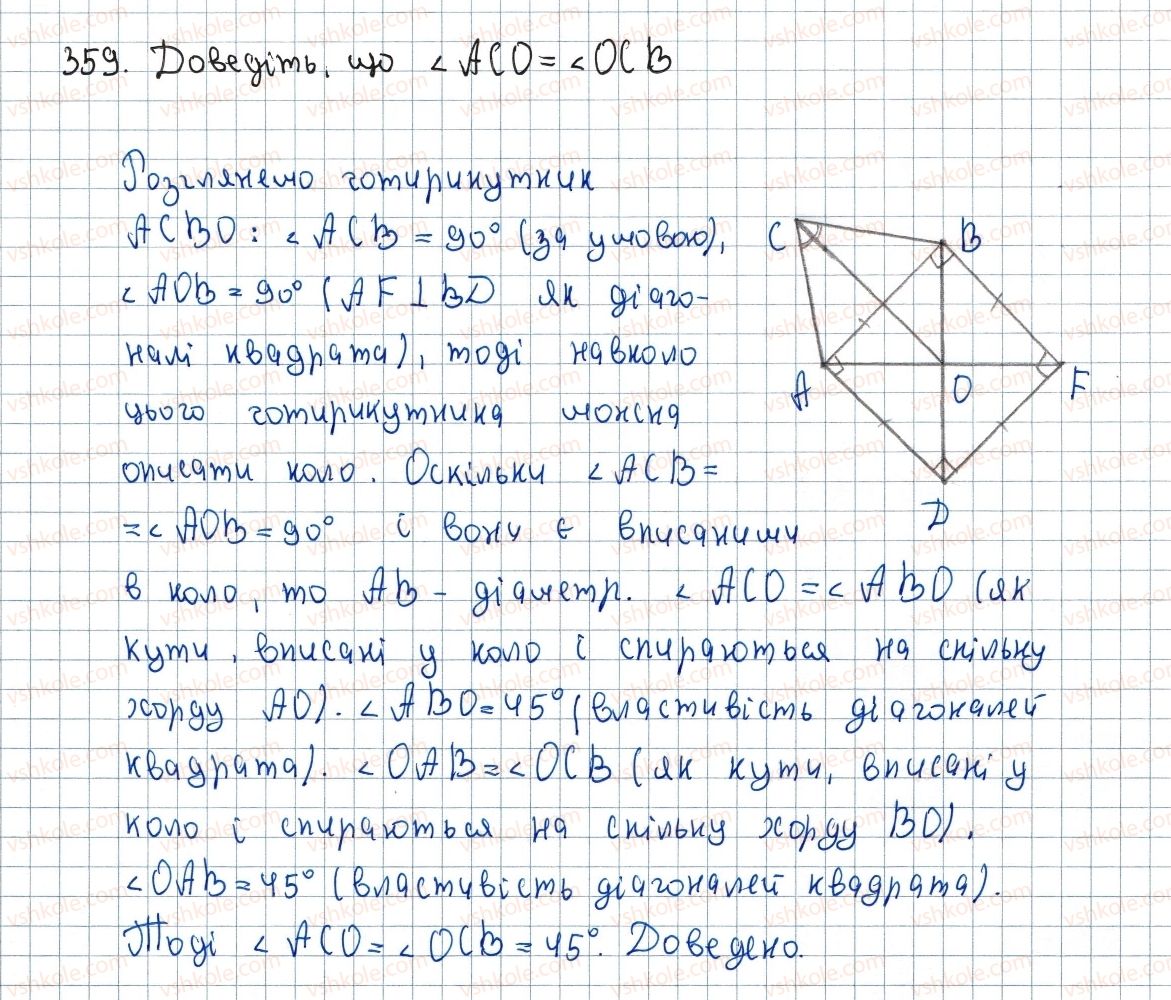 359. Доведіть, що ∠ACO = ∠OCB
Розглянемо чотирикутник
ACBO: ∠ACB = 90° (за умовою),
∠AOB = 90° (AF⊥BD як діаго-
налі квадрата), тоді навколо
цього чотирикутника можна
описати коло. Оскільки ∠ACB =
= ∠AOB = 90° і вони є вписаними
в коло, то AB - діаметр. ∠ACO = ∠ABO (як
кути, вписані у коло і спираються на спільну
хорду AO). ∠ABO = 45° (властивість діагоналей
квадрата). ∠OAB = ∠OCB (як кути, вписані у
коло і спираються на спільну хорду BO).
∠OAB = 45° (властивість діагоналей квадрата).
Тоді ∠ACO = ∠OCB = 45°. Доведено.
C
B
A
O
F
D
vshkole.com